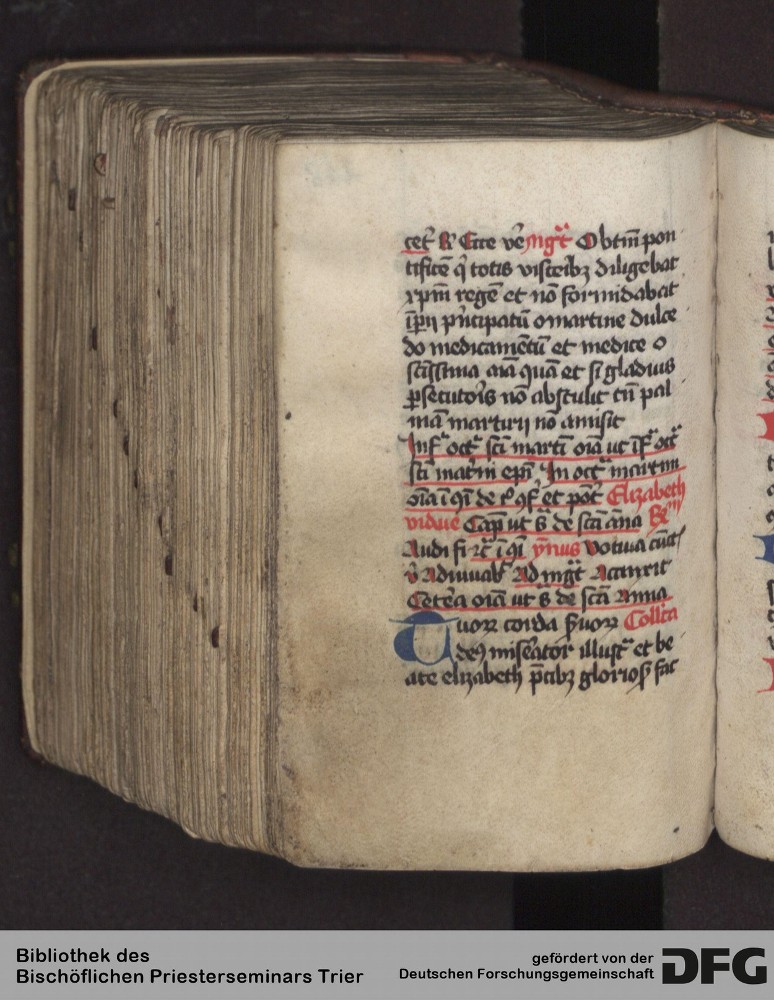 cet̄ R Ecce ve mg̃t O btm̄ pon
tificē q̄ totis viscēibꝫ diligebat
xpm̄ regē et nō formidabat
īpij pn̄cipatū o martine dulce
do medicamētū et medice o
sc̄issima aīa quā et si gladius
ꝑsecutoīs nō abstulit tn̄ pal
mā martirij nō amisit
Inf̄ oct̄ sc̄i martī oīa ut īf̄ oct̄
sc̄i mat̄ni ep̄i In oct̄ martini
oīa ī qͥ de et Elizabeth
vidue Cap̄ ut s̄ de sc̄a āna
Audi fi ī qͥ ȳnus Votiua cūct
v̄ Adiuuab̄ Ad mg̃t Accinxit
Cetēa oīa ut s̄ de sc̄a Anna
Tuoꝝ corda f̄uoꝝ Collc̄a
deꝰ misēator illust̄ et be
ate elizabeth p̄cibꝫ glorios̄ fac
Bibliothek des
Bischöflichen Priesterseminars Trier
gefördert von der
Deutschen Forschungsgemeinschaft DFG